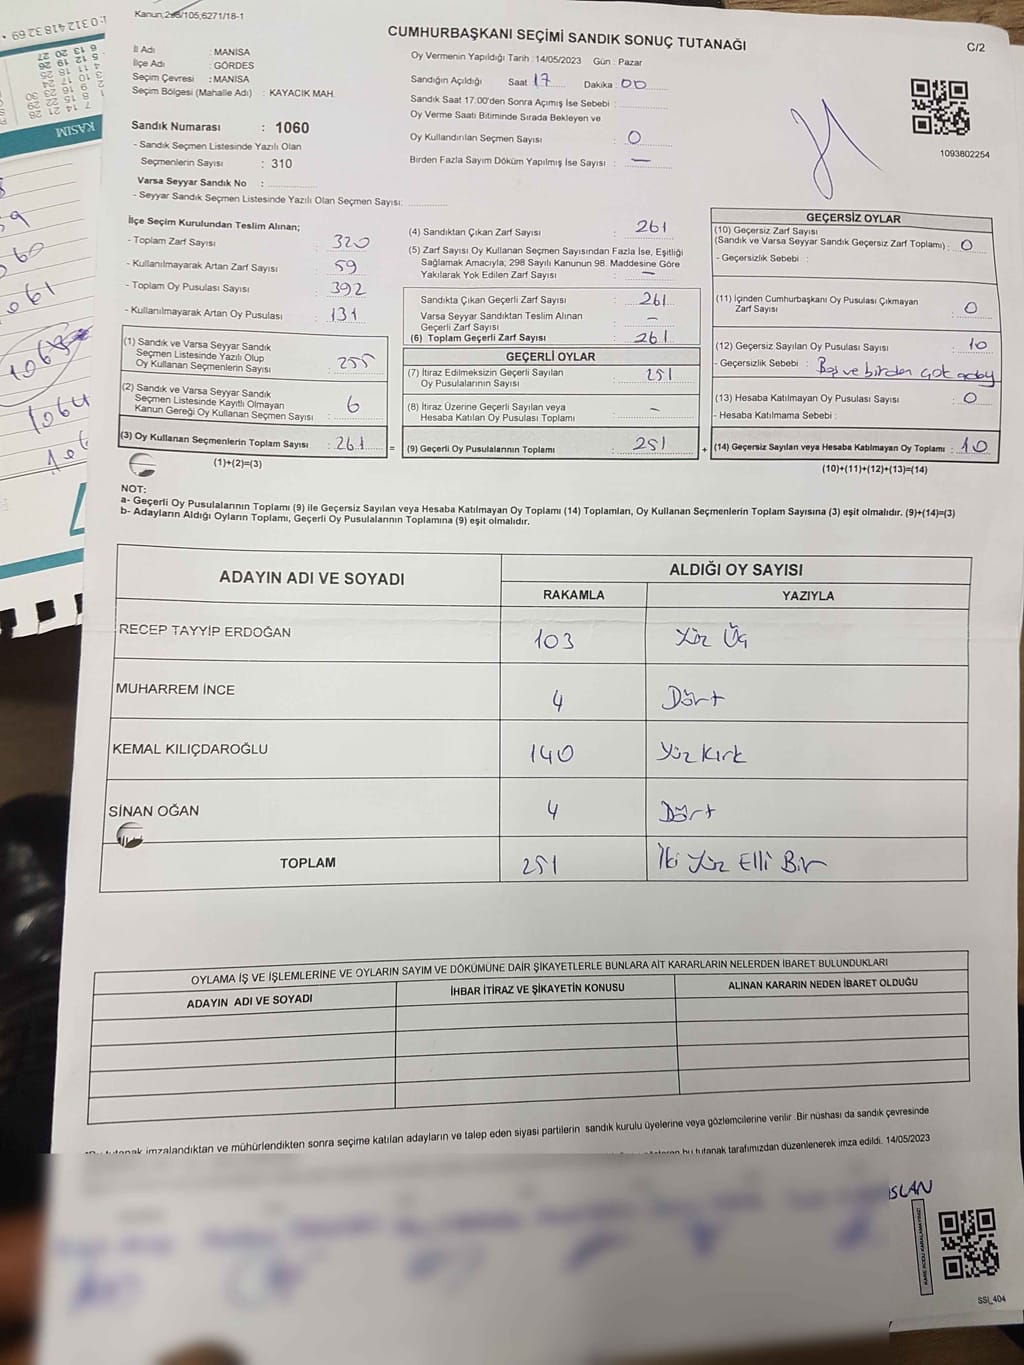 Kanun;298/105;6271/18-1
CUMHURBAŞKANI SEÇİMİ SANDIK SONUÇ TUTANAĞI
C/2
İl Adı : MANİSA
İlçe Adı : GÖRDES
Seçim Çevresi : MANİSA
Seçim Bölgesi (Mahalle Adı) : KAYACIK MAH.
Sandık Numarası : 1060
- Sandık Seçmen Listesinde Yazılı Olan
Seçmenlerin Sayısı : 310
Varsa Seyyar Sandık No :
- Seyyar Sandık Seçmen Listesinde Yazılı Olan Seçmen Sayısı:
Oy Vermenin Yapıldığı Tarih : 14/05/2023 Gün : Pazar
Sandığın Açıldığı Saat 17 Dakika : 00
Sandık Saat 17:00'den Sonra Açımış İse Sebebi :
Oy Verme Saati Bitiminde Sırada Bekleyen ve
Oy Kullandırılan Seçmen Sayısı : 0
Birden Fazla Sayım Döküm Yapılmış İse Sayısı : —
1093802254
İlçe Seçim Kurulundan Teslim Alınan;
- Toplam Zarf Sayısı : 320
- Kullanılmayarak Artan Zarf Sayısı : 59
- Toplam Oy Pusulası Sayısı : 392
- Kullanılmayarak Artan Oy Pusulası : 131
(1) Sandık ve Varsa Seyyar Sandık
Seçmen Listesinde Yazılı Olup
Oy Kullanan Seçmenlerin Sayısı : 255
(2) Sandık ve Varsa Seyyar Sandık
Seçmen Listesinde Kayıtlı Olmayan
Kanun Gereği Oy Kullanan Seçmen Sayısı : 6
(3) Oy Kullanan Seçmenlerin Toplam Sayısı : 261 =
(1)+(2)=(3)
(4) Sandıktan Çıkan Zarf Sayısı : 261
(5) Zarf Sayısı Oy Kullanan Seçmen Sayısından Fazla İse, Eşitliği
Sağlamak Amacıyla; 298 Sayılı Kanunun 98. Maddesine Göre
Yakılarak Yok Edilen Zarf Sayısı : —
Sandıkta Çıkan Geçerli Zarf Sayısı : 261
Varsa Seyyar Sandıktan Teslim Alınan
Geçerli Zarf Sayısı : —
(6) Toplam Geçerli Zarf Sayısı : 261
GEÇERLİ OYLAR
(7) İtiraz Edilmeksizin Geçerli Sayılan
Oy Pusulalarının Sayısı : 251
(8) İtiraz Üzerine Geçerli Sayılan veya
Hesaba Katılan Oy Pusulası Toplamı : —
(9) Geçerli Oy Pusulalarının Toplamı : 251 +
GEÇERSİZ OYLAR
(10) Geçersiz Zarf Sayısı
(Sandık ve Varsa Seyyar Sandık Geçersiz Zarf Toplamı) : 0
- Geçersizlik Sebebi :
(11) İçinden Cumhurbaşkanı Oy Pusulası Çıkmayan
Zarf Sayısı : 0
(12) Geçersiz Sayılan Oy Pusulası Sayısı : 10
- Geçersizlik Sebebi : Boş ve birden çok aday
(13) Hesaba Katılmayan Oy Pusulası Sayısı : 0
- Hesaba Katılmama Sebebi :
(14) Geçersiz Sayılan veya Hesaba Katılmayan Oy Toplamı : 10
(10)+(11)+(12)+(13)=(14)
NOT:
a- Geçerli Oy Pusulalarının Toplamı (9) ile Geçersiz Sayılan veya Hesaba Katılmayan Oy Toplamı (14) Toplamları, Oy Kullanan Seçmenlerin Toplam Sayısına (3) eşit olmalıdır. (9)+(14)=(3)
b- Adayların Aldığı Oyların Toplamı, Geçerli Oy Pusulalarının Toplamına (9) eşit olmalıdır.
ADAYIN ADI VE SOYADI ALDIĞI OY SAYISI
RAKAMLA YAZIYLA
RECEP TAYYİP ERDOĞAN 103 Yüz Üç
MUHARREM İNCE 4 Dört
KEMAL KILIÇDAROĞLU 140 Yüz Kırk
SİNAN OĞAN 4 Dört
TOPLAM 251 İki Yüz Elli Bir
OYLAMA İŞ VE İŞLEMLERİNE VE OYLARIN SAYIM VE DÖKÜMÜNE DAİR ŞİKAYETLERLE BUNLARA AİT KARARLARIN NELERDEN İBARET BULUNDUKLARI
ADAYIN ADI VE SOYADI İHBAR İTİRAZ VE ŞİKAYETİN KONUSU ALINAN KARARIN NEDEN İBARET OLDUĞU
imzalandıktan ve mühürlendikten sonra seçime katılan adayların ve talep eden siyasi partilerin sandık kurulu üyelerine veya gözlemcilerine verilir. Bir nüshası da sandık çevresinde
bu tutanak tarafımızdan düzenlenerek imza edildi. 14/05/2023
SLAN
KARE KODU KARALAMAYINIZ!
SSI_404
KASIM
1064